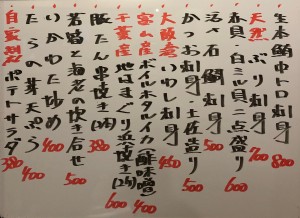 生本鮪中トロ 800
天然ぶり刺身 700
春貝・白ミル貝二点盛り 600
活〆石鯛刺身
かつお刺身・土佐造り 500
大羽いわし刺身 450
富山産ボイルホタルイカ(酢味噌) 400
千葉産地はまぐり浜焼き(2ヶ) 600
豚たん串焼き(2本) 380
若筍と海老の炊き合せ 500
りかわた炒め 400
たらの芽天ぷら 400
自家製ポテトサラダ 380